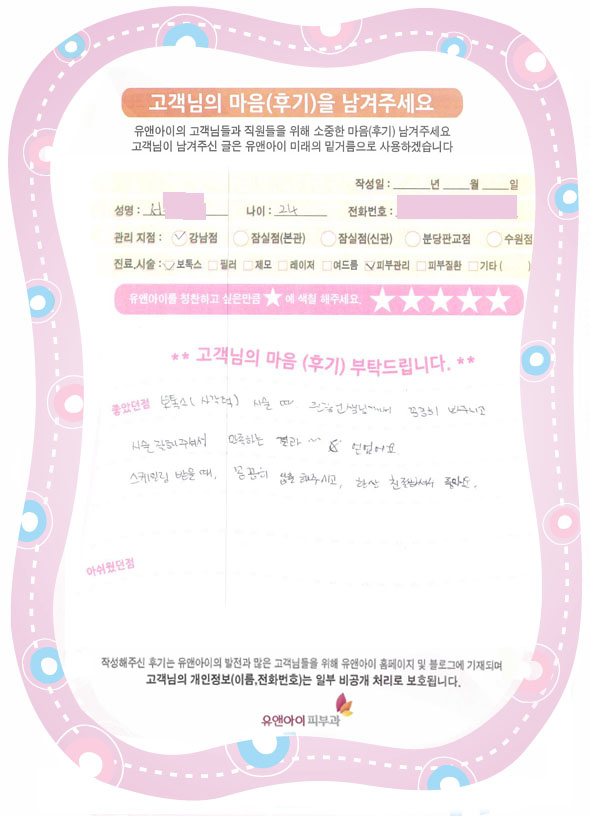 고객님의 마음(후기)을 남겨주세요
유앤아이의 고객님들과 직원들을 위해 소중한 마음(후기) 남겨주세요
고객님이 남겨주신 글은 유앤아이 미래의 밑거름으로 사용하겠습니다
작성일 : 년 월 일
성명 : 나이 : 24 전화번호 :
관리 지점 : 강남점 잠실점(본관) 잠실점(신관) 분당판교점 수원점
진료,시술 : 보톡스 필러 제모 레이저 여드름 피부관리 피부질환 기타 ( )
유앤아이를 칭찬하고 싶은만큼 ★ 에 색칠 해주세요. ★★★★★
** 고객님의 마음 (후기) 부탁드립니다. **
좋았던점 보톡스(사각턱) 시술 때 원장선생님께서 꼼꼼히 봐주시고
시술 잘해주셔서 만족하는 결과~ 얻었어요
스케일링 받을 때, 꼼꼼히 해주시고, 항상 친절하셔서 좋아요.
아쉬웠던점
작성해주신 후기는 유앤아이의 발전과 많은 고객님들을 위해 유앤아이 홈페이지 및 블로그에 기재되며
고객님의 개인정보(이름,전화번호)는 일부 비공개 처리로 보호됩니다.
유앤아이피부과